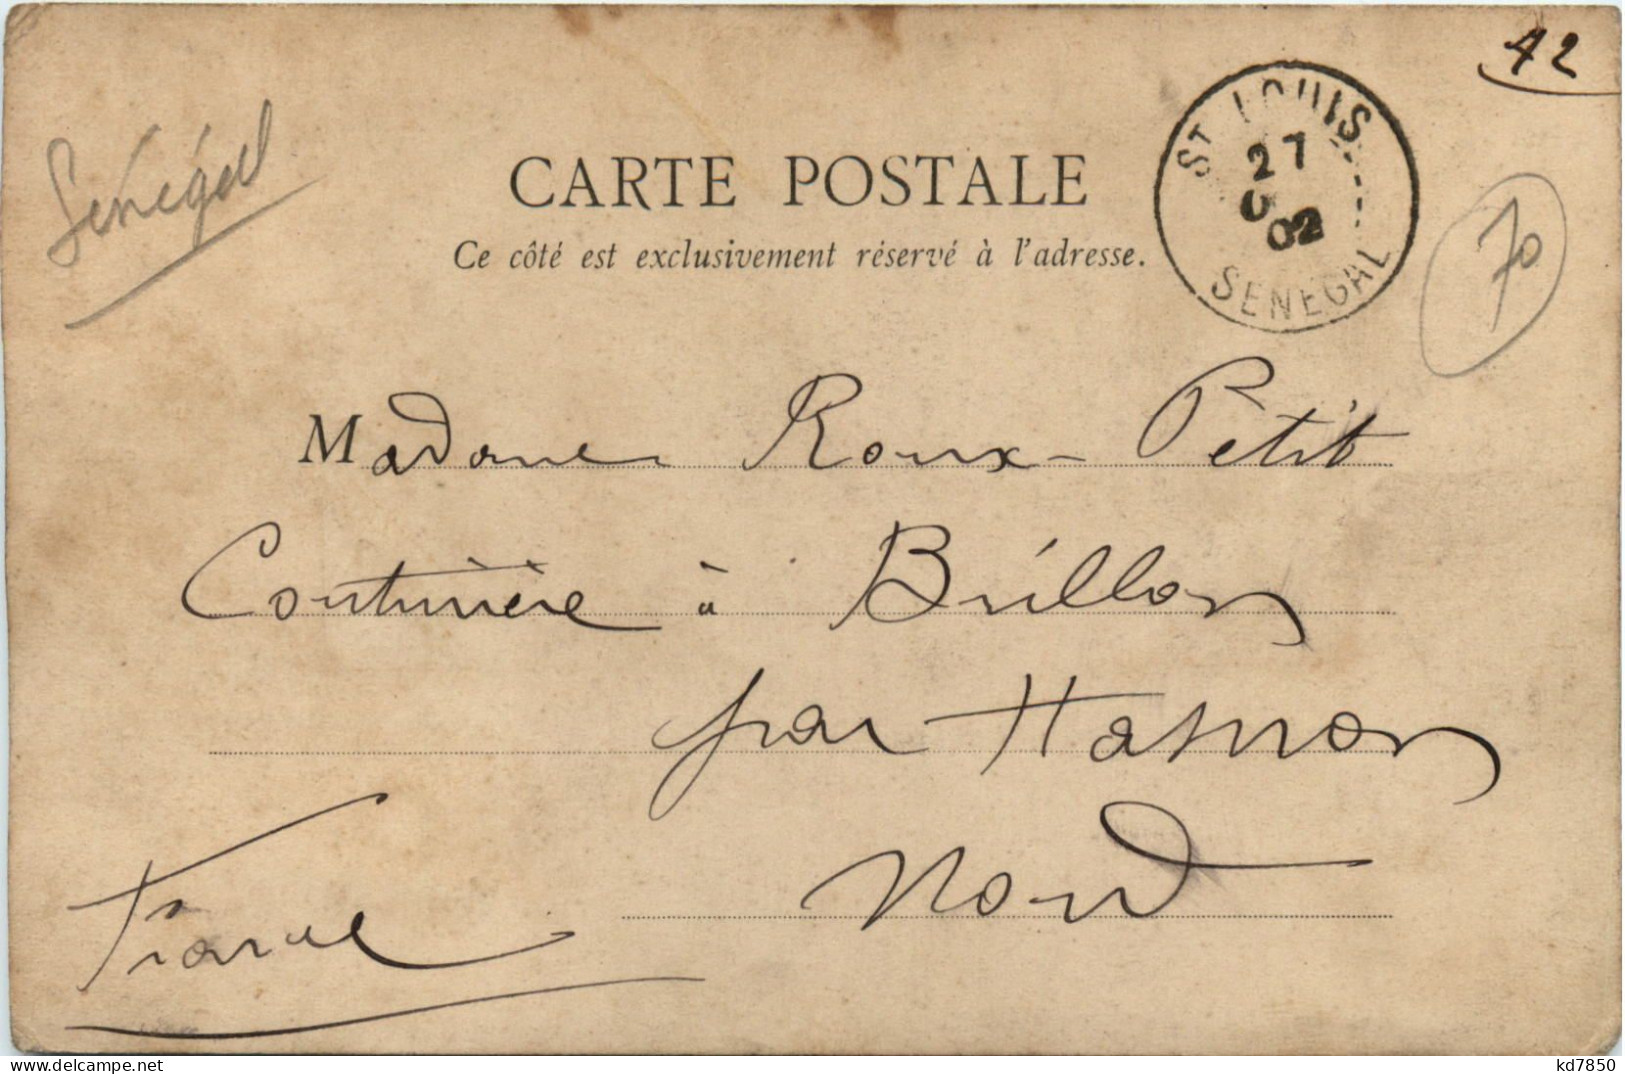 42
ST LOUIS
27
02
SENEGAL
Sénégal
70
CARTE POSTALE
Ce côté est exclusivement réservé à l'adresse.
Madame Roux-Petit
Couturière à Brillon
par Hasnon
Nord
France
kd7850